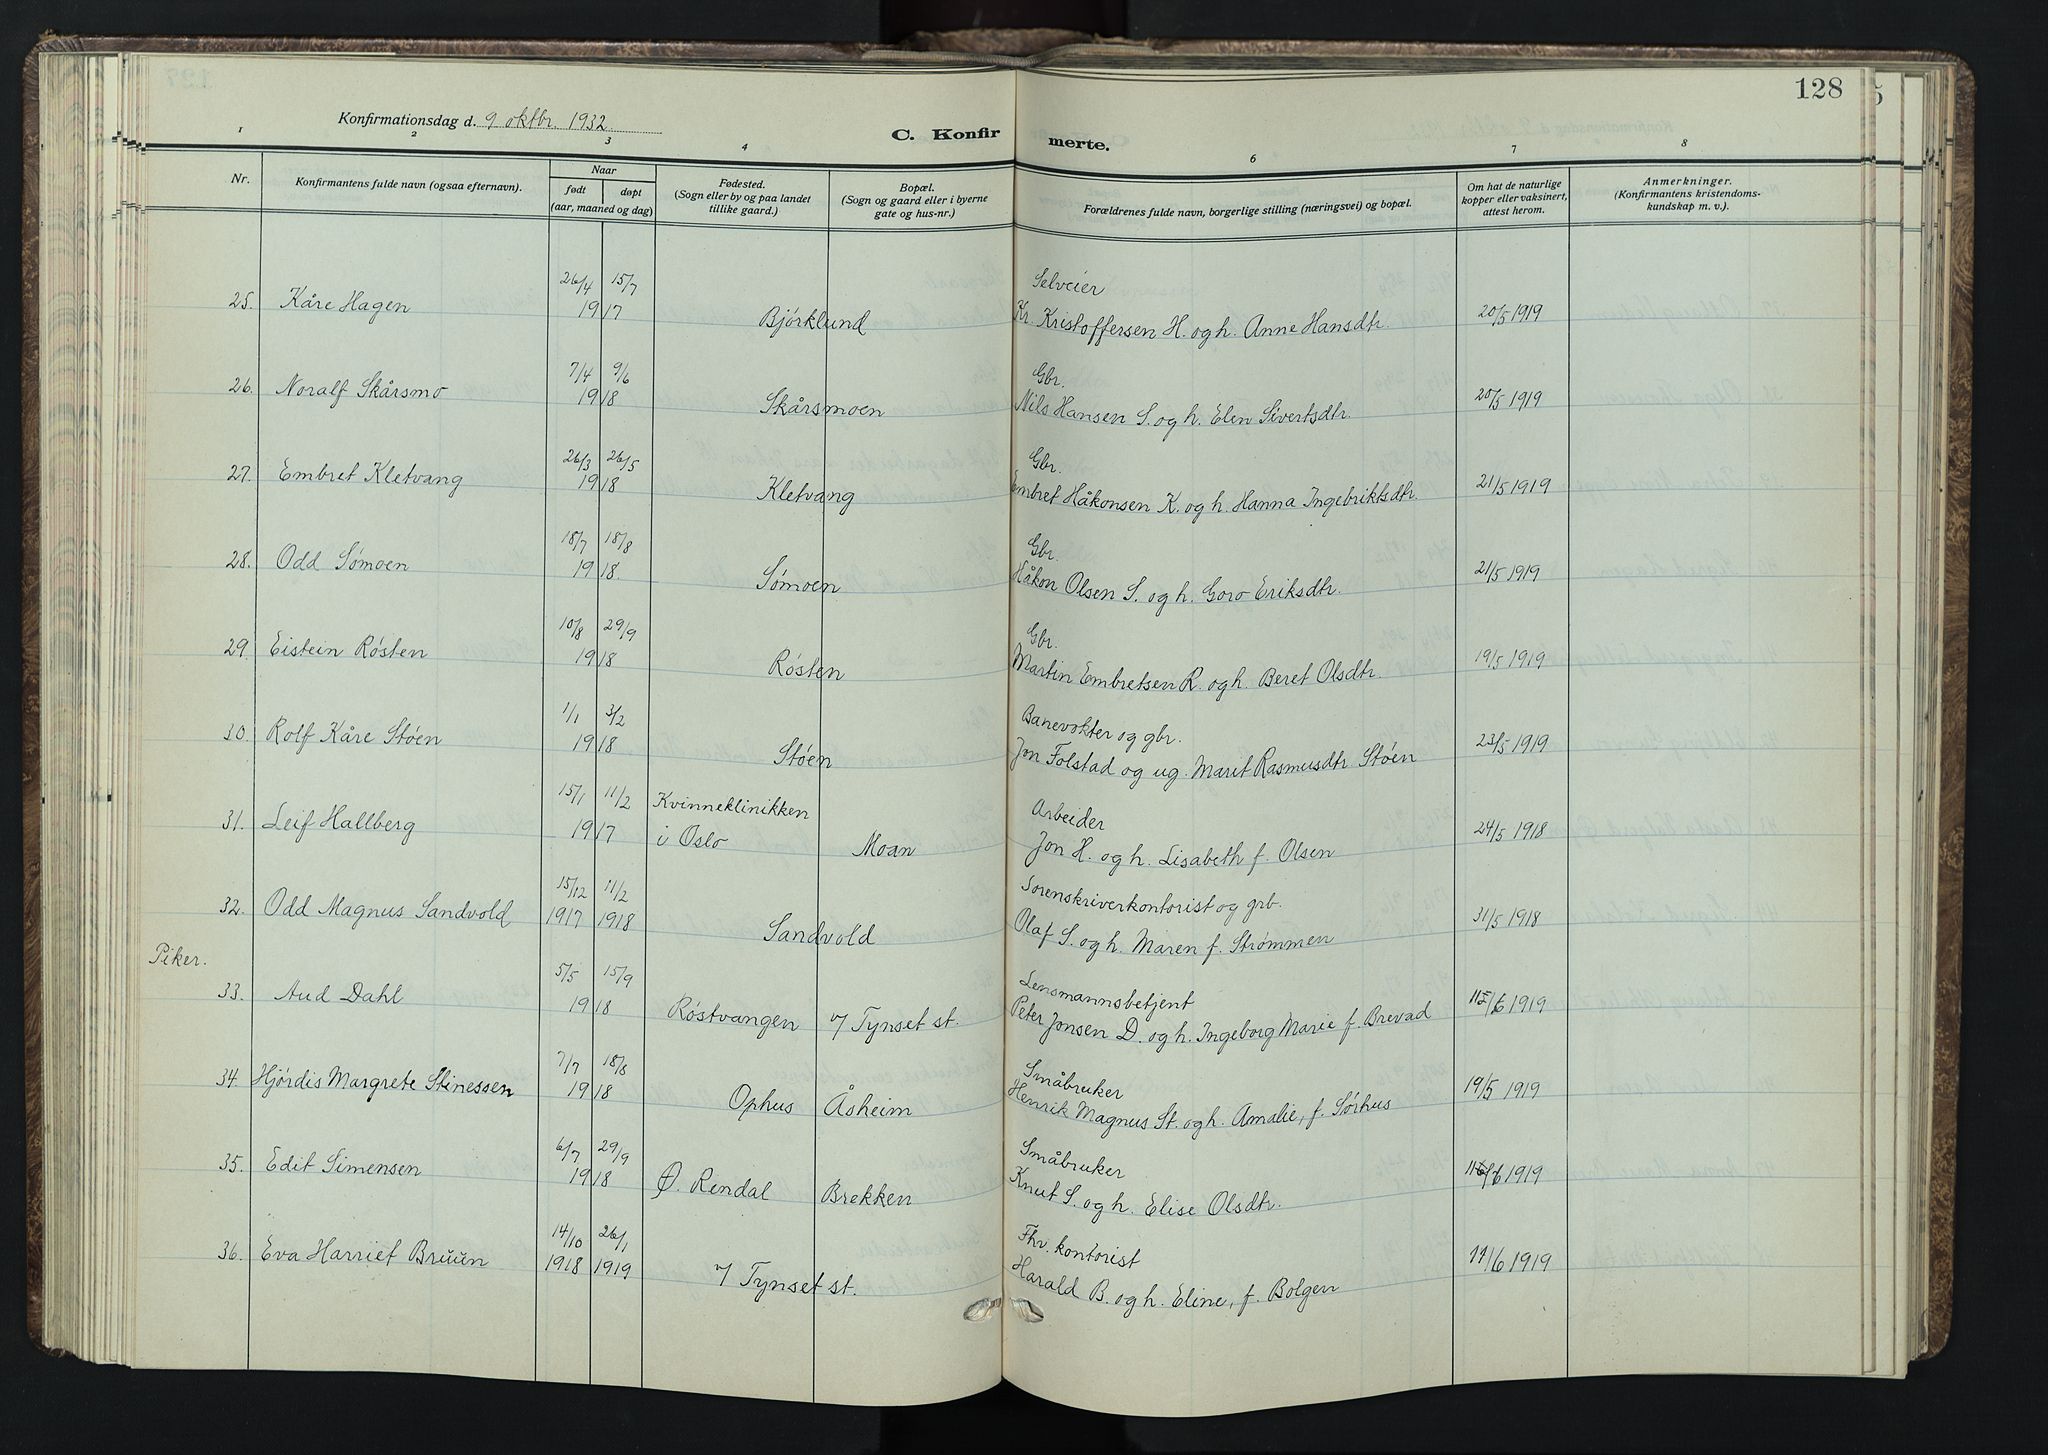 128
Konfirmationsdag d. 9 oktbr. 1932.
C. Konfirmerte.
1 2 3 4 6 7 8
Nr. Konfirmantens fulde navn (ogsaa efternavn). Naar født døpt (aar, maaned og dag) Fødested. (Sogn eller by og paa landet tillike gaard.) Bopæl. (Sogn og gaard eller i byerne gate og hus-nr.) Forældrenes fulde navn, borgerlige stilling (næringsvei) og bopæl. Om hat de naturlige kopper eller vaksinert, attest herom. Anmerkninger. (Konfirmantens kristendoms-kundskap m. v.).
26/4 15/7 Selveier
25. Kåre Hagen 1917 Bjørklund Kr. Kristoffersen H. og h. Anne Hansdtr. 20/5 1919
7/4 9/6 Gbr.
26. Noralf Skårsmo 1918 Skårsmoen Nils Hansen S. og h. Elen Sivertsdtr. 20/5 1919
26/3 26/5 Gbr.
27. Embret Kletvang 1918 Kletvang Embret Håkonsen K. og h. Hanna Ingebriktsdtr. 21/5 1919
18/7 18/8 Gbr.
28. Odd Sømoen 1918. Sømoen Håkon Olsen S. og h. Goro Eriksdtr. 21/5 1919
10/8 29/9 Gbr.
29. Eistein Røsten 1918 Røsten Martin Embretsen R. og h. Beret Olsdtr. 19/5 1919
1/1 3/2 Banevokter og gbr.
30. Rolf Kåre Støen 1918 Støen Jon Folstad og ug. Marit Rasmusdtr Støen 23/5 1919
15/1 11/2 Kvinneklinikken Arbeider
31. Leif Hallberg 1917 i Oslo Moan Jon H. og h. Lisabeth f. Olsen 24/5 1918
15/12 11/2 Sorenskriverkontorist og grb.
32. Odd Magnus Sandvold 1917 1918 Sandvold Olaf S. og h. Maren f. Strømmen 31/5 1918
Piker.
5/5 15/9 Lensmannsbetjent
33. Aud Dahl 1918 Røstvangen 7 Tynset st. Peter Jonsen D. og h. Ingeborg Marie f. Brevad /6 1919
7/7 18/8 Småbruker
34. Hjørdis Margrete Stinessen 1918 Ophus Åsheim Henrik Magnus St. og h. Amalie, f. Sørhus 19/5 1919
6/7 29/9 Småbruker
35. Edit Simensen 1918 Ø. Rendal Brekken Knut S. og h. Elise Olsdtr. /6 1919
14/10 26/1 Fhv. kontorist
36. Eva Harriet Bruun 1918 1919 7 Tynset st. Harald B. og h. Eline, f. Bolgen 11/6 1919